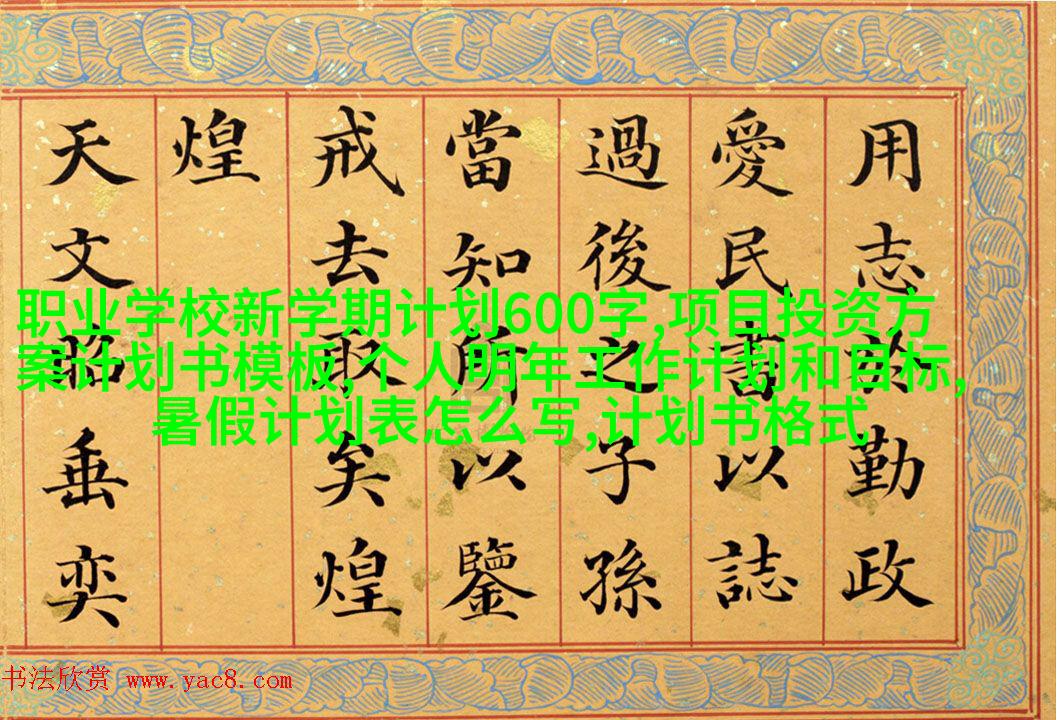 用志於勤政
愛民書以誌
過後之子孫
當知所以鑒
戒去取矣煌
煌
天文昭垂奕
职业学校新学期计划600字,项目投资方
案计划书模板,个人明年工作计划和目标,
暑假计划表怎么写,计划书格式
书法欣赏 www.yac8.com